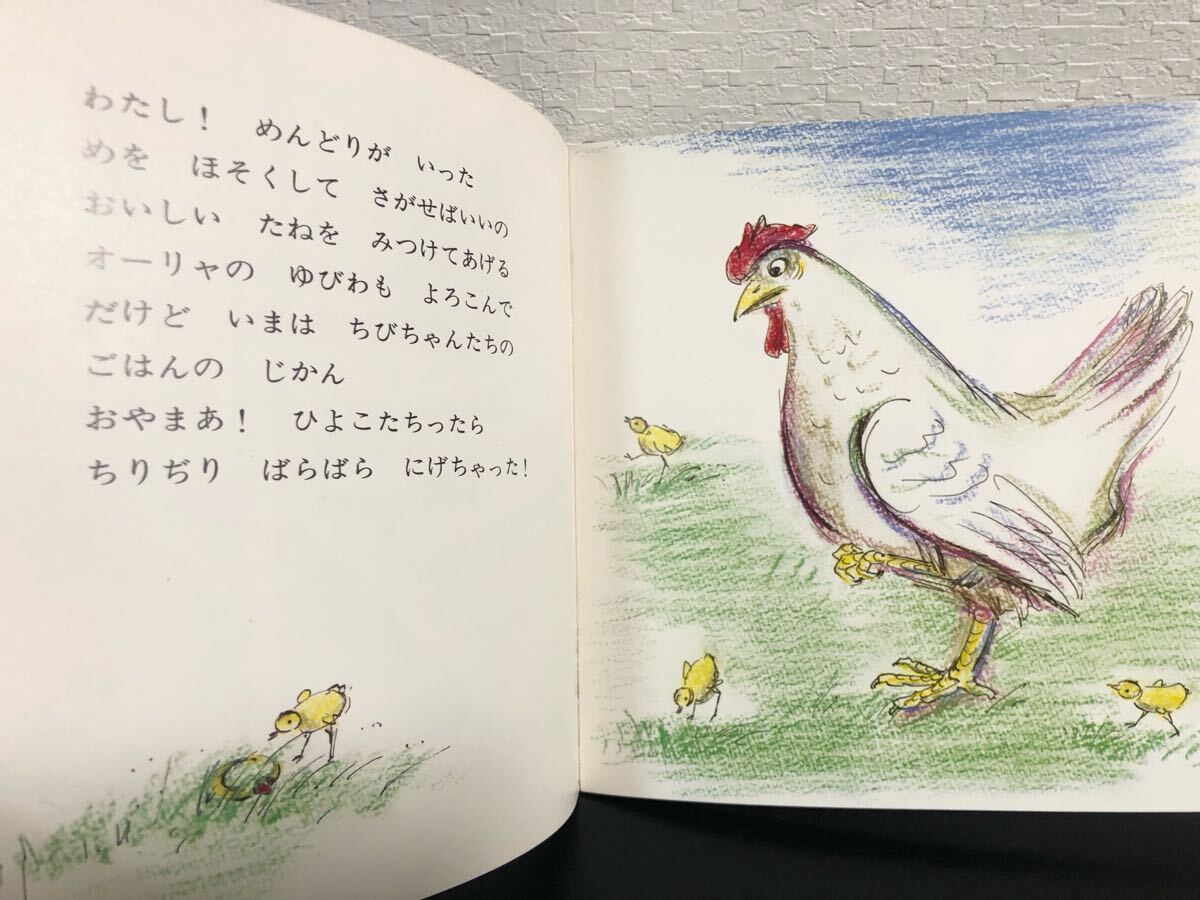 わたし!　めんどりが　いった
めを　ほそくして　さがせばいいの
おいしい　たねを　みつけてあげる
オーリャの　ゆびわも　よろこんで
だけど　いまは　ちびちゃんたちの
ごはんの　じかん
おやまあ!　ひよこたちったら
ちりぢり　ばらばら　にげちゃった!